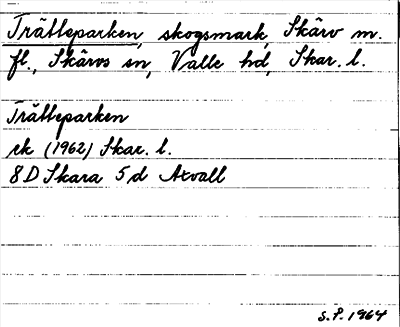 Trätteparken, skogsmark, Skärv m.
fl., Skärvs sn, Valle hd, Skar. l.
Trätteparken
rk (1962) Skar. l.
8D Skara 5d Axvall
S.P. 1964